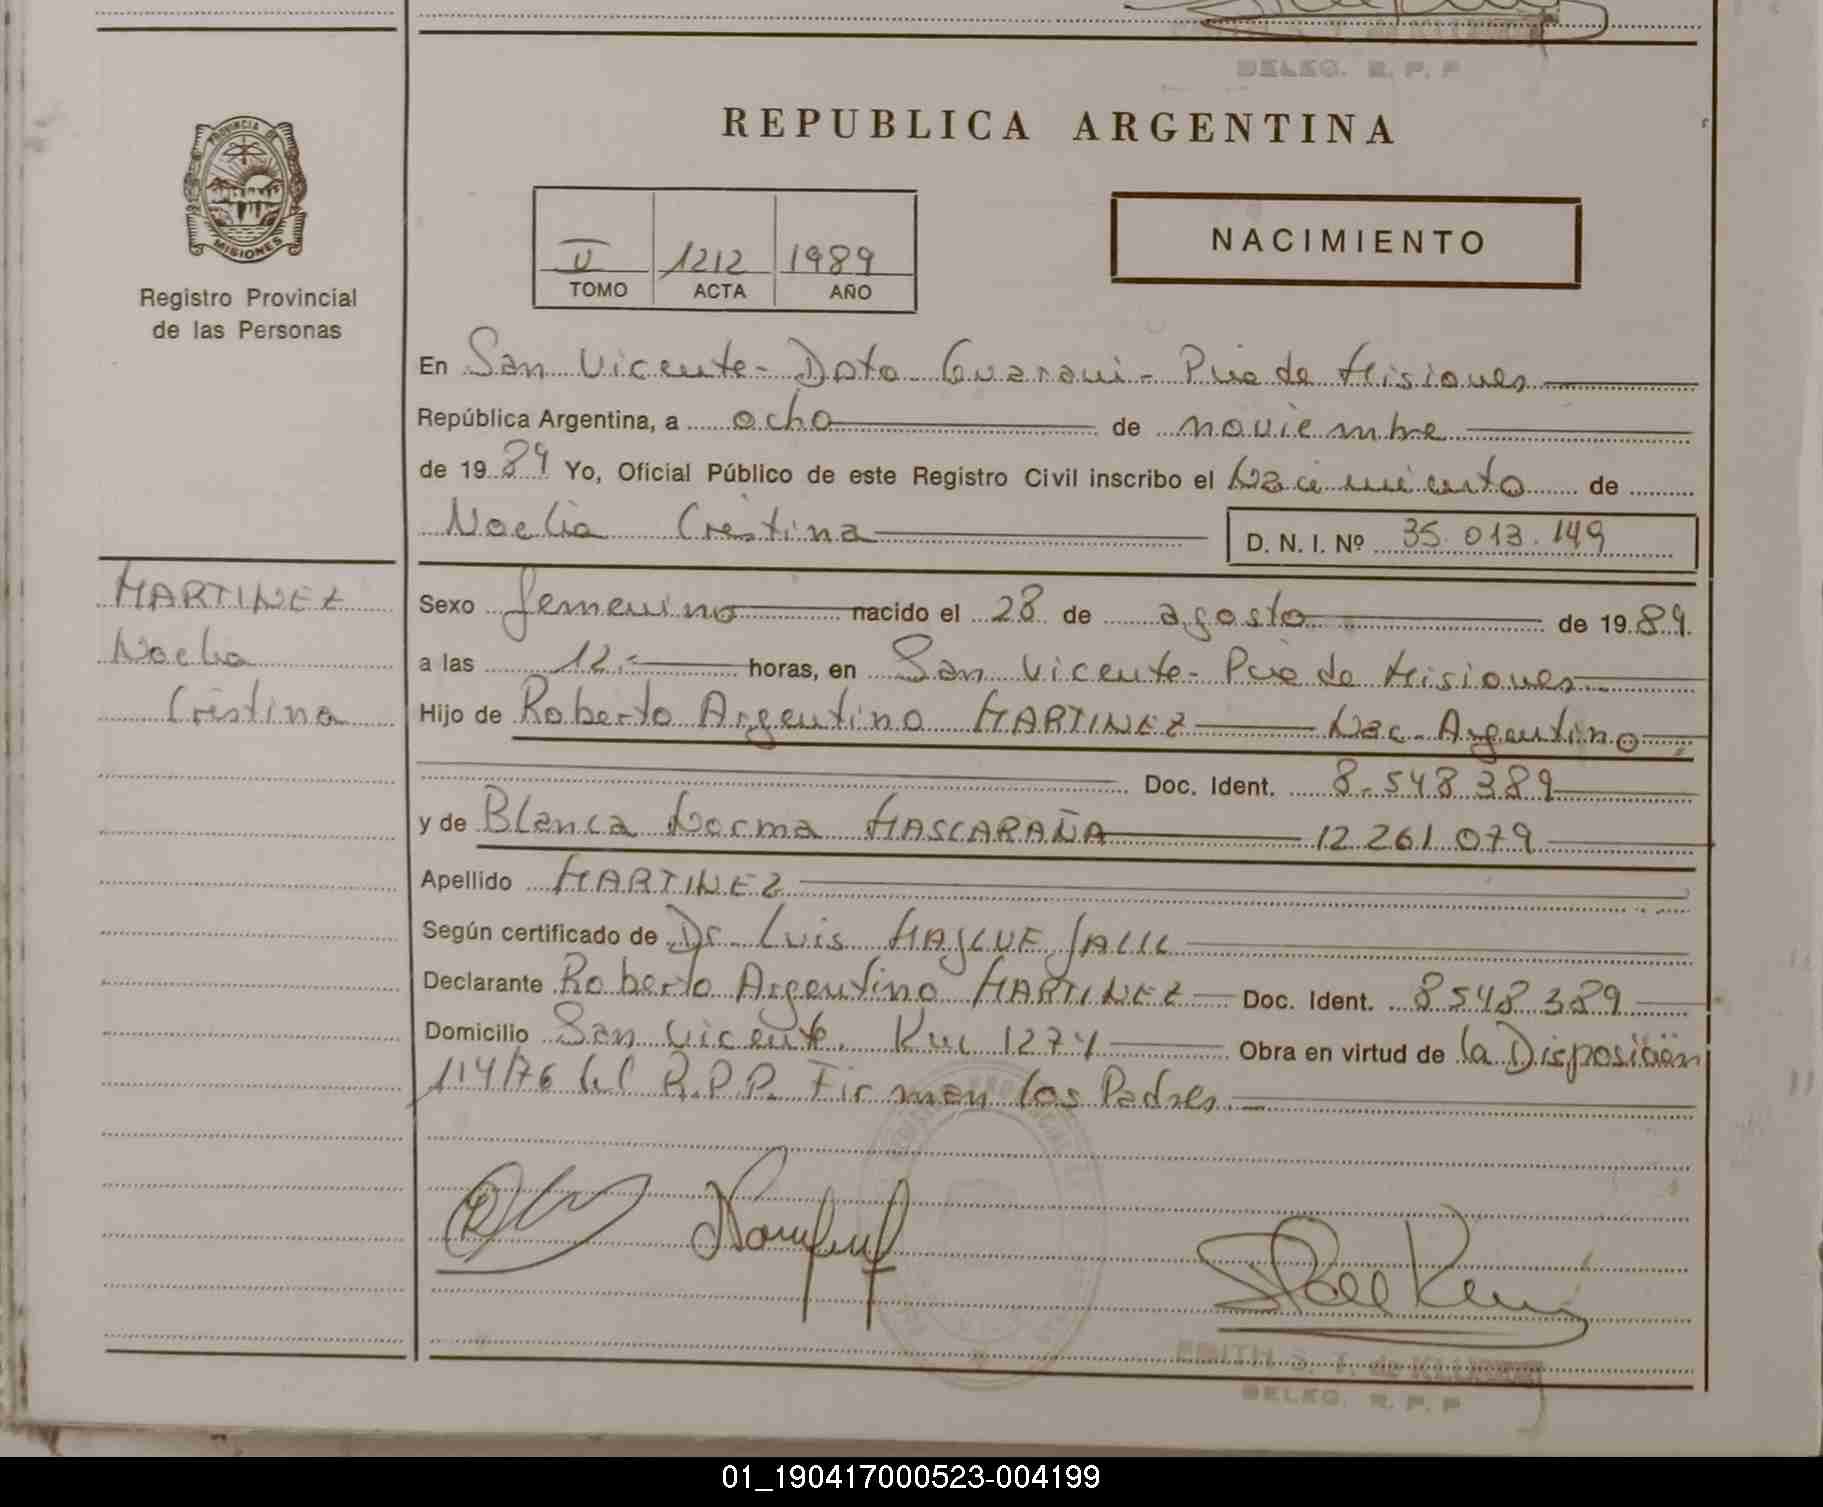 DELEG. R. P. P
REPUBLICA ARGENTINA
PROVINCIA DE
MISIONES
Registro Provincial
de las Personas
1212 1989
TOMO ACTA AÑO
NACIMIENTO
En San Vicente - Dpto Guarani - Pcia de Misiones
República Argentina, a ocho de noviembre
de 1989 Yo, Oficial Público de este Registro Civil inscribo el Nacimiento de
Noelia Cristina
D. N. I. Nº 35.013.149
MARTINEZ
Noelia
Cristina
Sexo femenino nacido el 28 de agosto de 1989.
a las 12.- horas, en San Vicente - Pcia de Misiones
Hijo de Roberto Argentino MARTINEZ Nac. Argentino
Doc. Ident. 8.548.389
y de Blanca Norma MASCARAÑA 12.261.079
Apellido MARTINEZ
Según certificado de Dr. Luis
Declarante Roberto Argentino MARTINEZ Doc. Ident. 8548.389
Domicilio San Vicente. Km 1274 Obra en virtud de la Disposición
114/76 del R.P.P. Firman los Padres.
EDITH S. T. de
DELEG. R. P. P
01_190417000523-004199